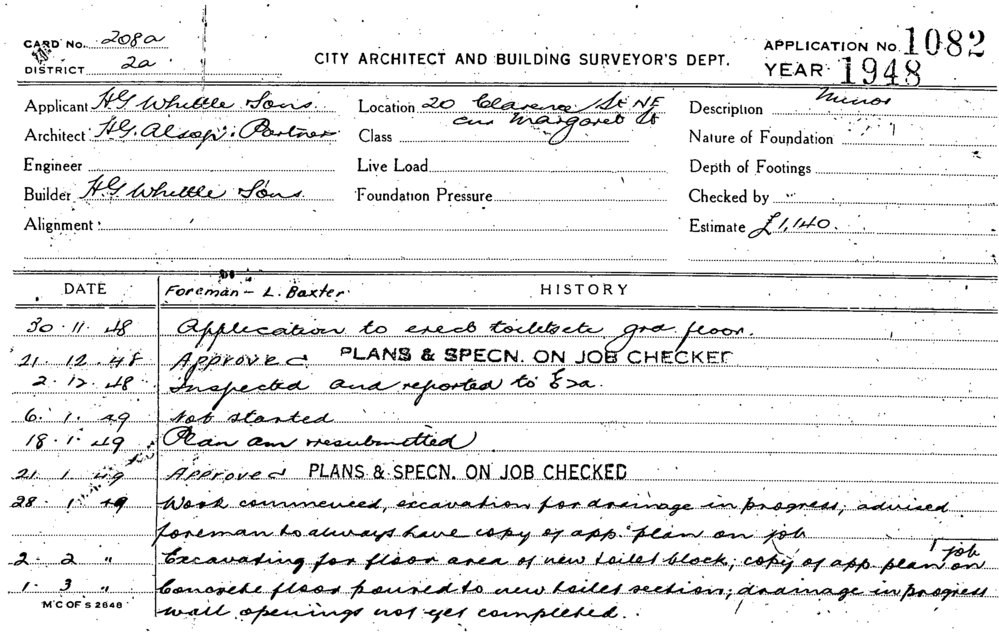 CARD No. 208a
DISTRICT 2a
CITY ARCHITECT AND BUILDING SURVEYOR'S DEPT.
APPLICATION No. 1082
YEAR 1948
Applicant H G Whittle Sons Location 20 Clarence St NE Description Minor
Architect H.G. Alsop & Partner cnr Margaret St
Class Nature of Foundation
Engineer Live Load Depth of Footings
Builder H G Whittle Sons Foundation Pressure Checked by
Alignment Estimate £1,140.
DATE Foreman - L. Baxter HISTORY
30. 11. 48 Application to erect toilets etc grd floor.
21. 12. 48 Approved PLANS & SPECN. ON JOB CHECKED
2. 12. 48 Inspected and reported to Exa.
6. 1. 49 Not started
18. 1. 49 Plan am resubmitted
21. 1. 49 Approved PLANS & SPECN. ON JOB CHECKED
28. 1. 49 Work commenced, excavation for drainage in progress; advised
foreman to always have copy of app. plan on job
2. 2 " Excavating for floor area of new toilet block; copy of app. plan on job
1. 3 " Concrete floor poured to new toilet section; drainage in progress
wall openings not yet completed.
M C OF S 2648